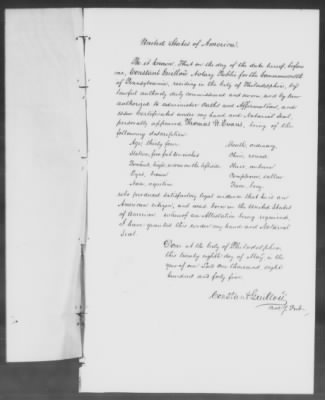 United States of America.
Be it known, That on the day of the date hereof, before
me, Constant Guillou, Notary Public for the Commonwealth
of Pennsylvania, residing in the City of Philadelphia, by
lawful authority duly commissioned and sworn and by law
authorized to administer Oaths and Affirmations, and
under my hand and Notarial Seal,
personally appeared Thomas W. Evans, being of the
following description
Age, thirty four
Mouth, ordinary,
Stature, five feet ten inches
Chin, round
Forehead, high
Hair, auburn
Eyes, brown
Complexion, sallow
Nose, aquiline
Face, long.
who produced satisfactory legal evidence that he is an
American citizen, and was born in the United States
of America whereof an Attestation being required,
I have granted this under my hand and Notarial
Seal.
Done at the City of Philadelphia
this twenty eighth day of May, in the
year of our Lord one thousand eight
hundred and forty four.
Constant Guillou
Not. Pub.